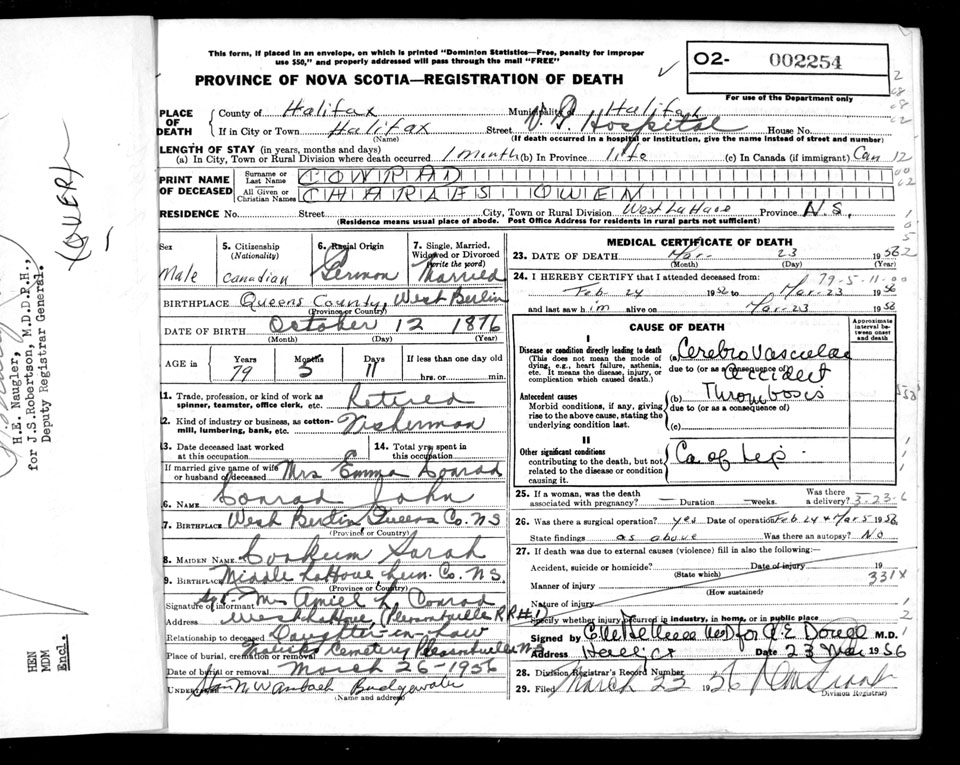 This form, if placed in an envelope, on which is printed "Dominion Statistics—Free, penalty for improper
use $50," and properly addressed will pass through the mail "FREE"
PROVINCE OF NOVA SCOTIA—REGISTRATION OF DEATH
O2- 002254
For use of the Department only
PLACE OF DEATH
County of Halifax Municipality of Halifax
If in City or Town Halifax Street V. G. Hospital House No.
(Name) (If death occurred in a hospital or institution, give the name instead of street and number)
LENGTH OF STAY (in years, months and days)
(a) In City, Town or Rural Division where death occurred 1 month (b) In Province life (c) In Canada (if immigrant) Can
PRINT NAME OF DECEASED
Surname or Last Name CONRAD
All Given or Christian Names CHARLES OWEN
RESIDENCE No. Street City, Town or Rural Division West LaHave Province N.S.
(Residence means usual place of abode. Post Office Address for residents in rural parts not sufficient)
Sex Male
5. Citizenship (Nationality) Canadian
6. Racial Origin German
7. Single, Married, Widowed or Divorced (write the word) Married
BIRTHPLACE Queens County, West Berlin
(Province or Country)
DATE OF BIRTH October 12 1876
(Month) (Day) (Year)
AGE in Years Months Days If less than one day old
79 5 11 hrs. or min.
11. Trade, profession, or kind of work as spinner, teamster, office clerk, etc. Retired
2. Kind of industry or business, as cotton-mill, lumbering, bank, etc. Fisherman
3. Date deceased last worked at this occupation
14. Total yrs. spent in this occupation
If married give name of wife or husband of deceased Mrs Emma Conrad
6. NAME Conrad John
7. BIRTHPLACE West Berlin, Queens Co. NS
(Province or Country)
8. MAIDEN NAME Sarah
9. BIRTHPLACE Middle LaHave Lun. Co. NS.
(Province or Country)
Signature of informant Mrs Amiel L Conrad
Address West LaHave, Pleasantville RR#1
Relationship to deceased Daughter-in-law
Place of burial, cremation or removal Cemetery, Pleasantville NS
Date of burial or removal March 26-1956
Bridgewater
(Name and address)
MEDICAL CERTIFICATE OF DEATH
23. DATE OF DEATH Mar. 23 1956
(Month) (Day) (Year)
24. I HEREBY CERTIFY that I attended deceased from: 79-5-11-00
Feb 24 1956 to Mar-23 1956
and last saw him alive on Mar-23 1956
CAUSE OF DEATH
Approximate interval between onset and death
I
Disease or condition directly leading to death
(This does not mean the mode of dying, e.g., heart failure, asthenia, etc. It means the disease, injury, or complication which caused death.)
(a) Cerebrovascular
due to (or as a consequence of)
Accident
Antecedent causes
Morbid conditions, if any, giving rise to the above cause, stating the underlying condition last.
(b) Thrombosis
due to (or as a consequence of)
(c)
II
Other significant conditions
contributing to the death, but not related to the disease or condition causing it.
Ca of Lip
25. If a woman, was the death associated with pregnancy? Duration weeks. Was there a delivery? 3-23-6
26. Was there a surgical operation? yes Date of operation Feb 24 & Mar 5 1956
State findings as above Was there an autopsy? No
27. If death was due to external causes (violence) fill in also the following:—
Accident, suicide or homicide? Date of injury 19
(State which)
331X
Manner of injury
(How sustained)
Nature of injury
Specify whether injury occurred in industry, in home, or in public place
Signed by M.D.
Address Halifax Date 23 Mar 1956
28. Division Registrar's Record Number
29. Filed March 23 1956
Division Registrar)
(OVER)
H.E. Naugler,
for J.S.Robertson, M.D.D.P.H.,
Deputy Registrar General.
HEN
MDM
Encl.